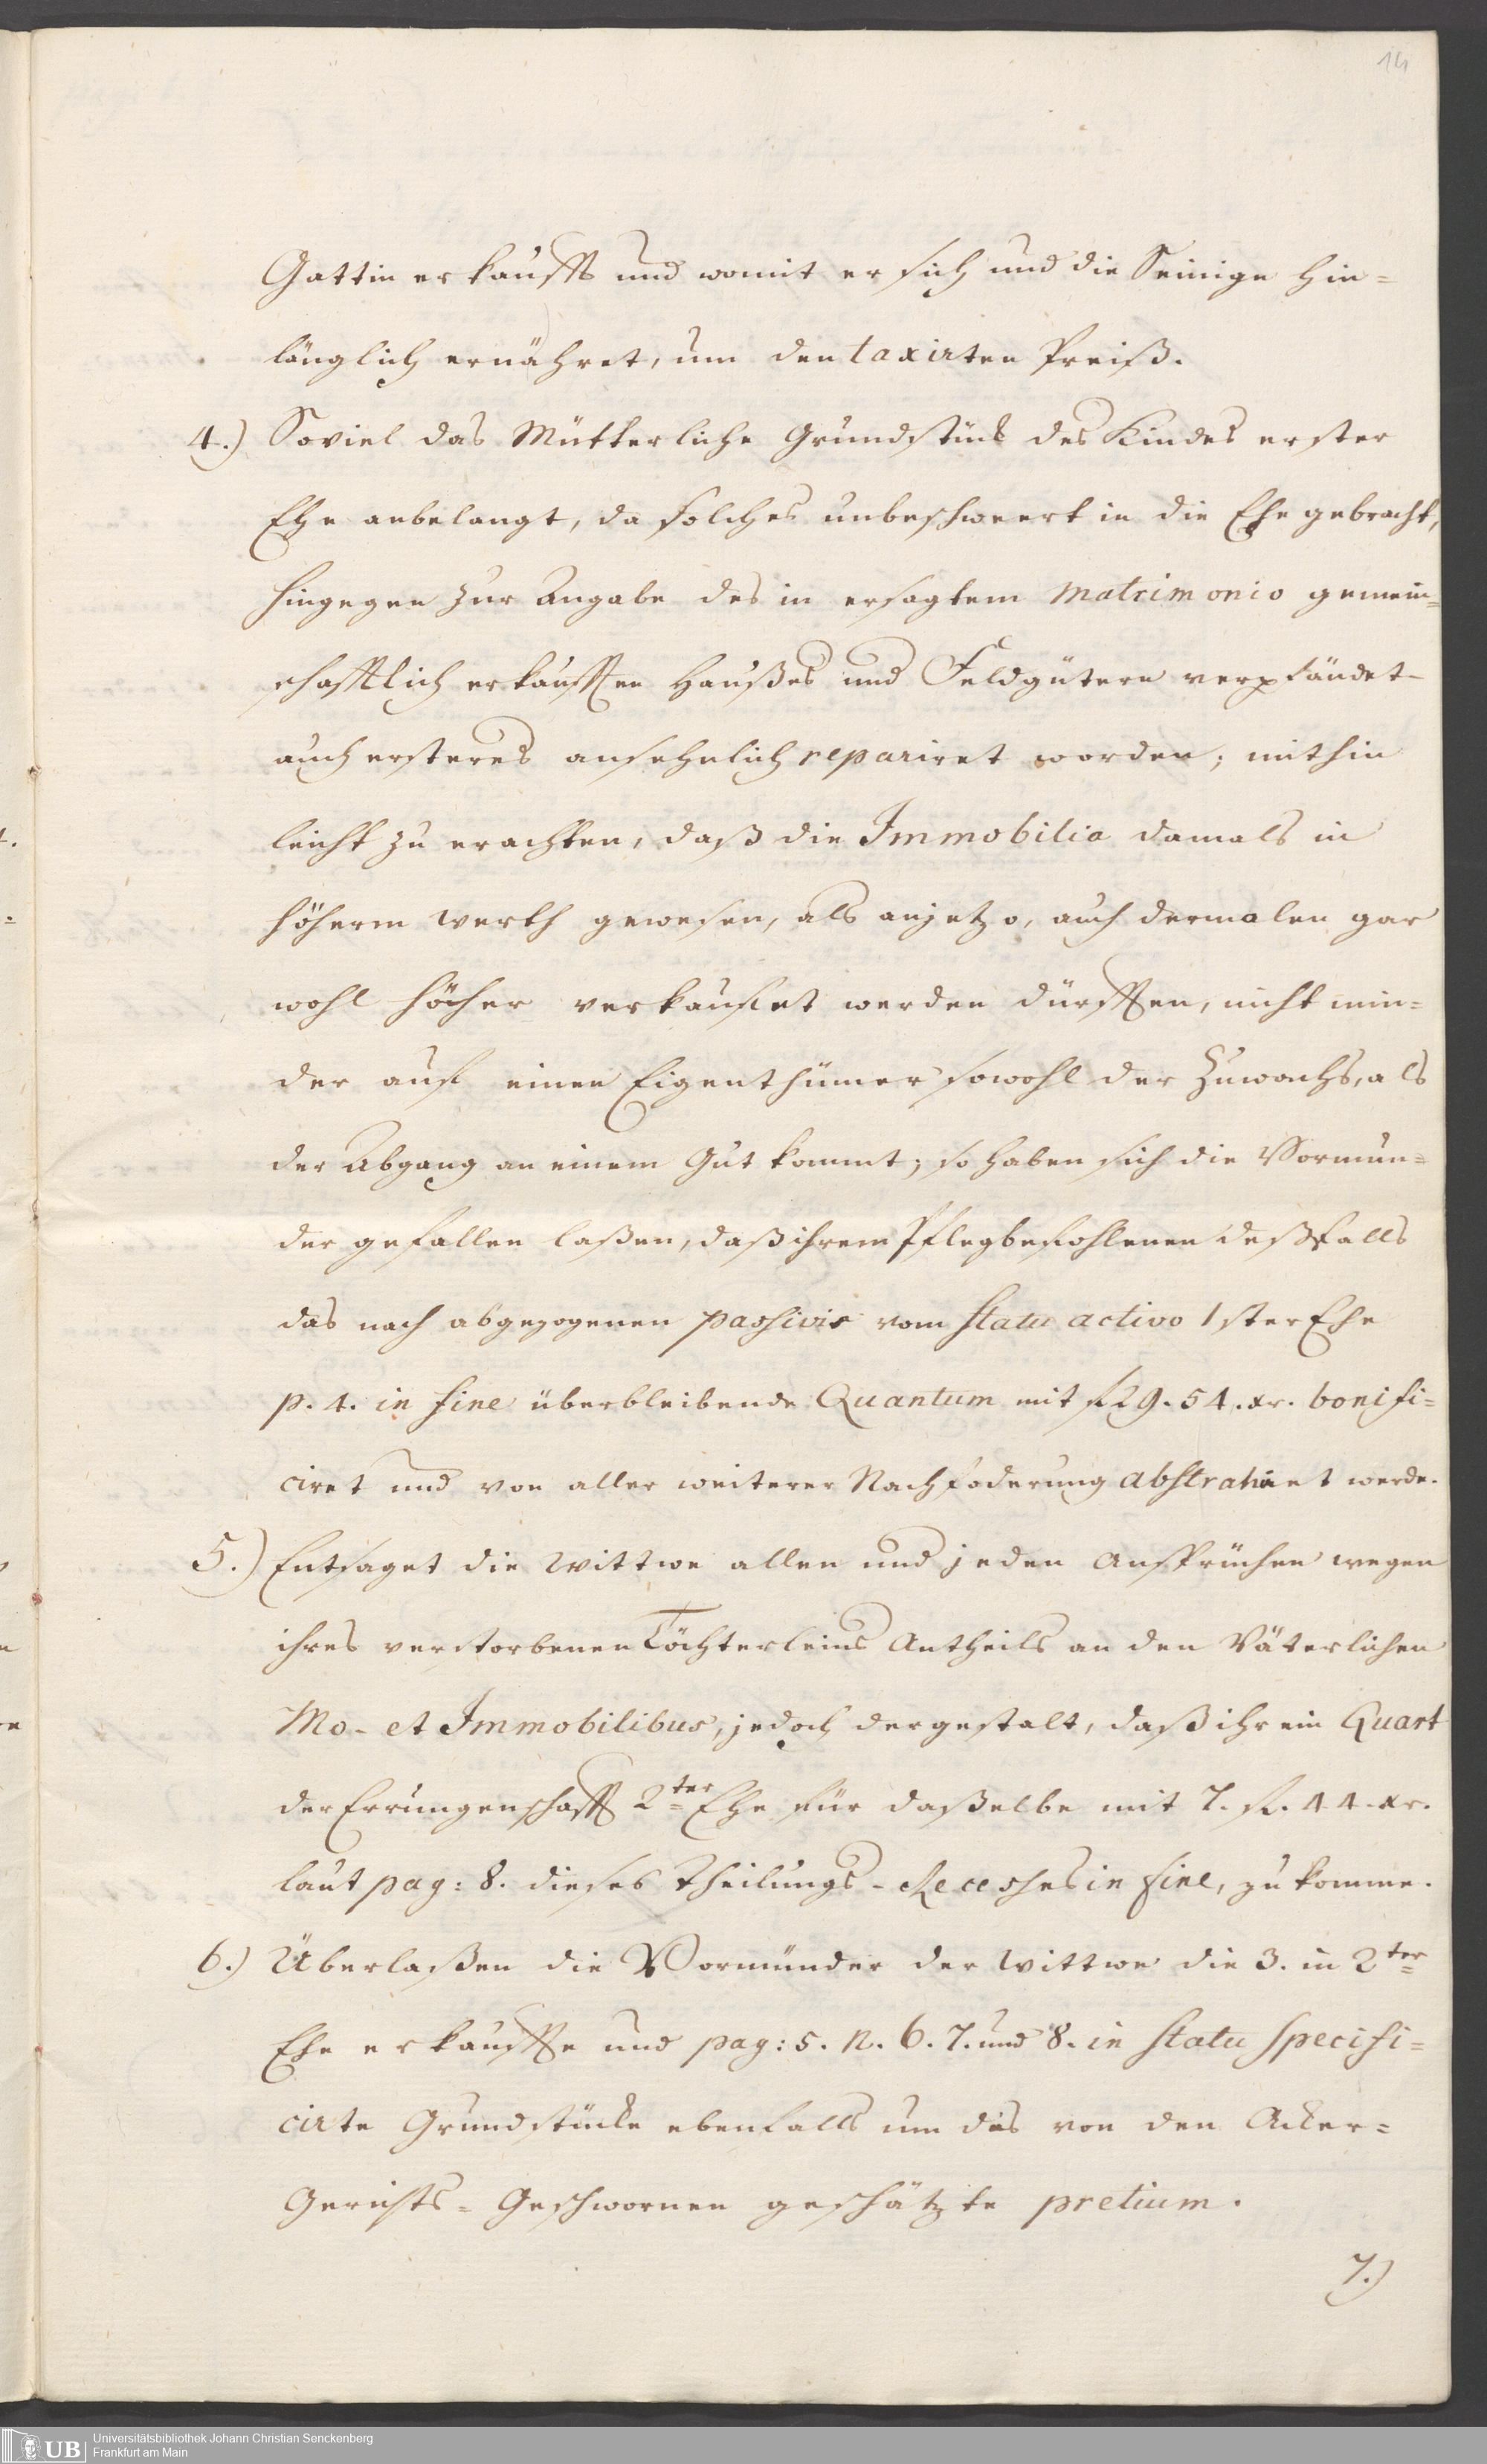 14
Gattin erkaufft und womit er sich und die Seinige hin=
länglich ernähret, um den taxirten Preiß.
4.) Soviel das Mütterliche Grundstück des Kindes erster
Ehe anbelangt, da solches unbeschweert in die Ehe gebracht,
hingegen zur Angabe des in ersagtem Matrimonio gemein=
schafftlich erkaufften Haußes und Feldgütern verpfändet-
auch ersteres ansehnlich repariret worden; mithin
leicht zu erachten, daß die Immobilia damals in
höherm werth gewesen, als anjetzo, auch dermalen gar
wohl höcher verkaufet werden dürfften, nicht min=
der auf einen Eigenthümer sowohl der Zuwachs, als
der Abgang an einem Gut kommt; so haben sich die Vormün=
der gefallen laßen, daß ihrem Pflegbefohlenen deßfalls
das nach abgezogenen passivis vom Statu activo 1ster Ehe
p. 4. in fine überbleibende Quantum mit f29. 54. xr. bonifi=
ciret und von aller weiterer Nachfoderung abstrahiret werde.
5.) Entsaget die Wittwe allen und jeden Ansprüchen wegen
ihres verstorbenen Töchterleins Antheils an den Väterlichen
Mo- et Immobilibus, jedoch dergestalt, daß ihr ein Quart
der Errungenschafft 2ter Ehe für daßelbe mit 7. f. 44. xr.
laut pag: 8. dieses Theilungs-Recesses in fine, zu komme.
6.) Überlaßen die Vormünder der Wittwe die 3. in 2ter
Ehe erkauffte und pag: 5. N. 6. 7. und 8. in Statu specifi=
cirte Grundstücke ebenfalls um das von den Acker=
Gerichts=Geschwornen geschätzte pretium.
7.)
UB Universitätsbibliothek Johann Christian Senckenberg
Frankfurt am Main